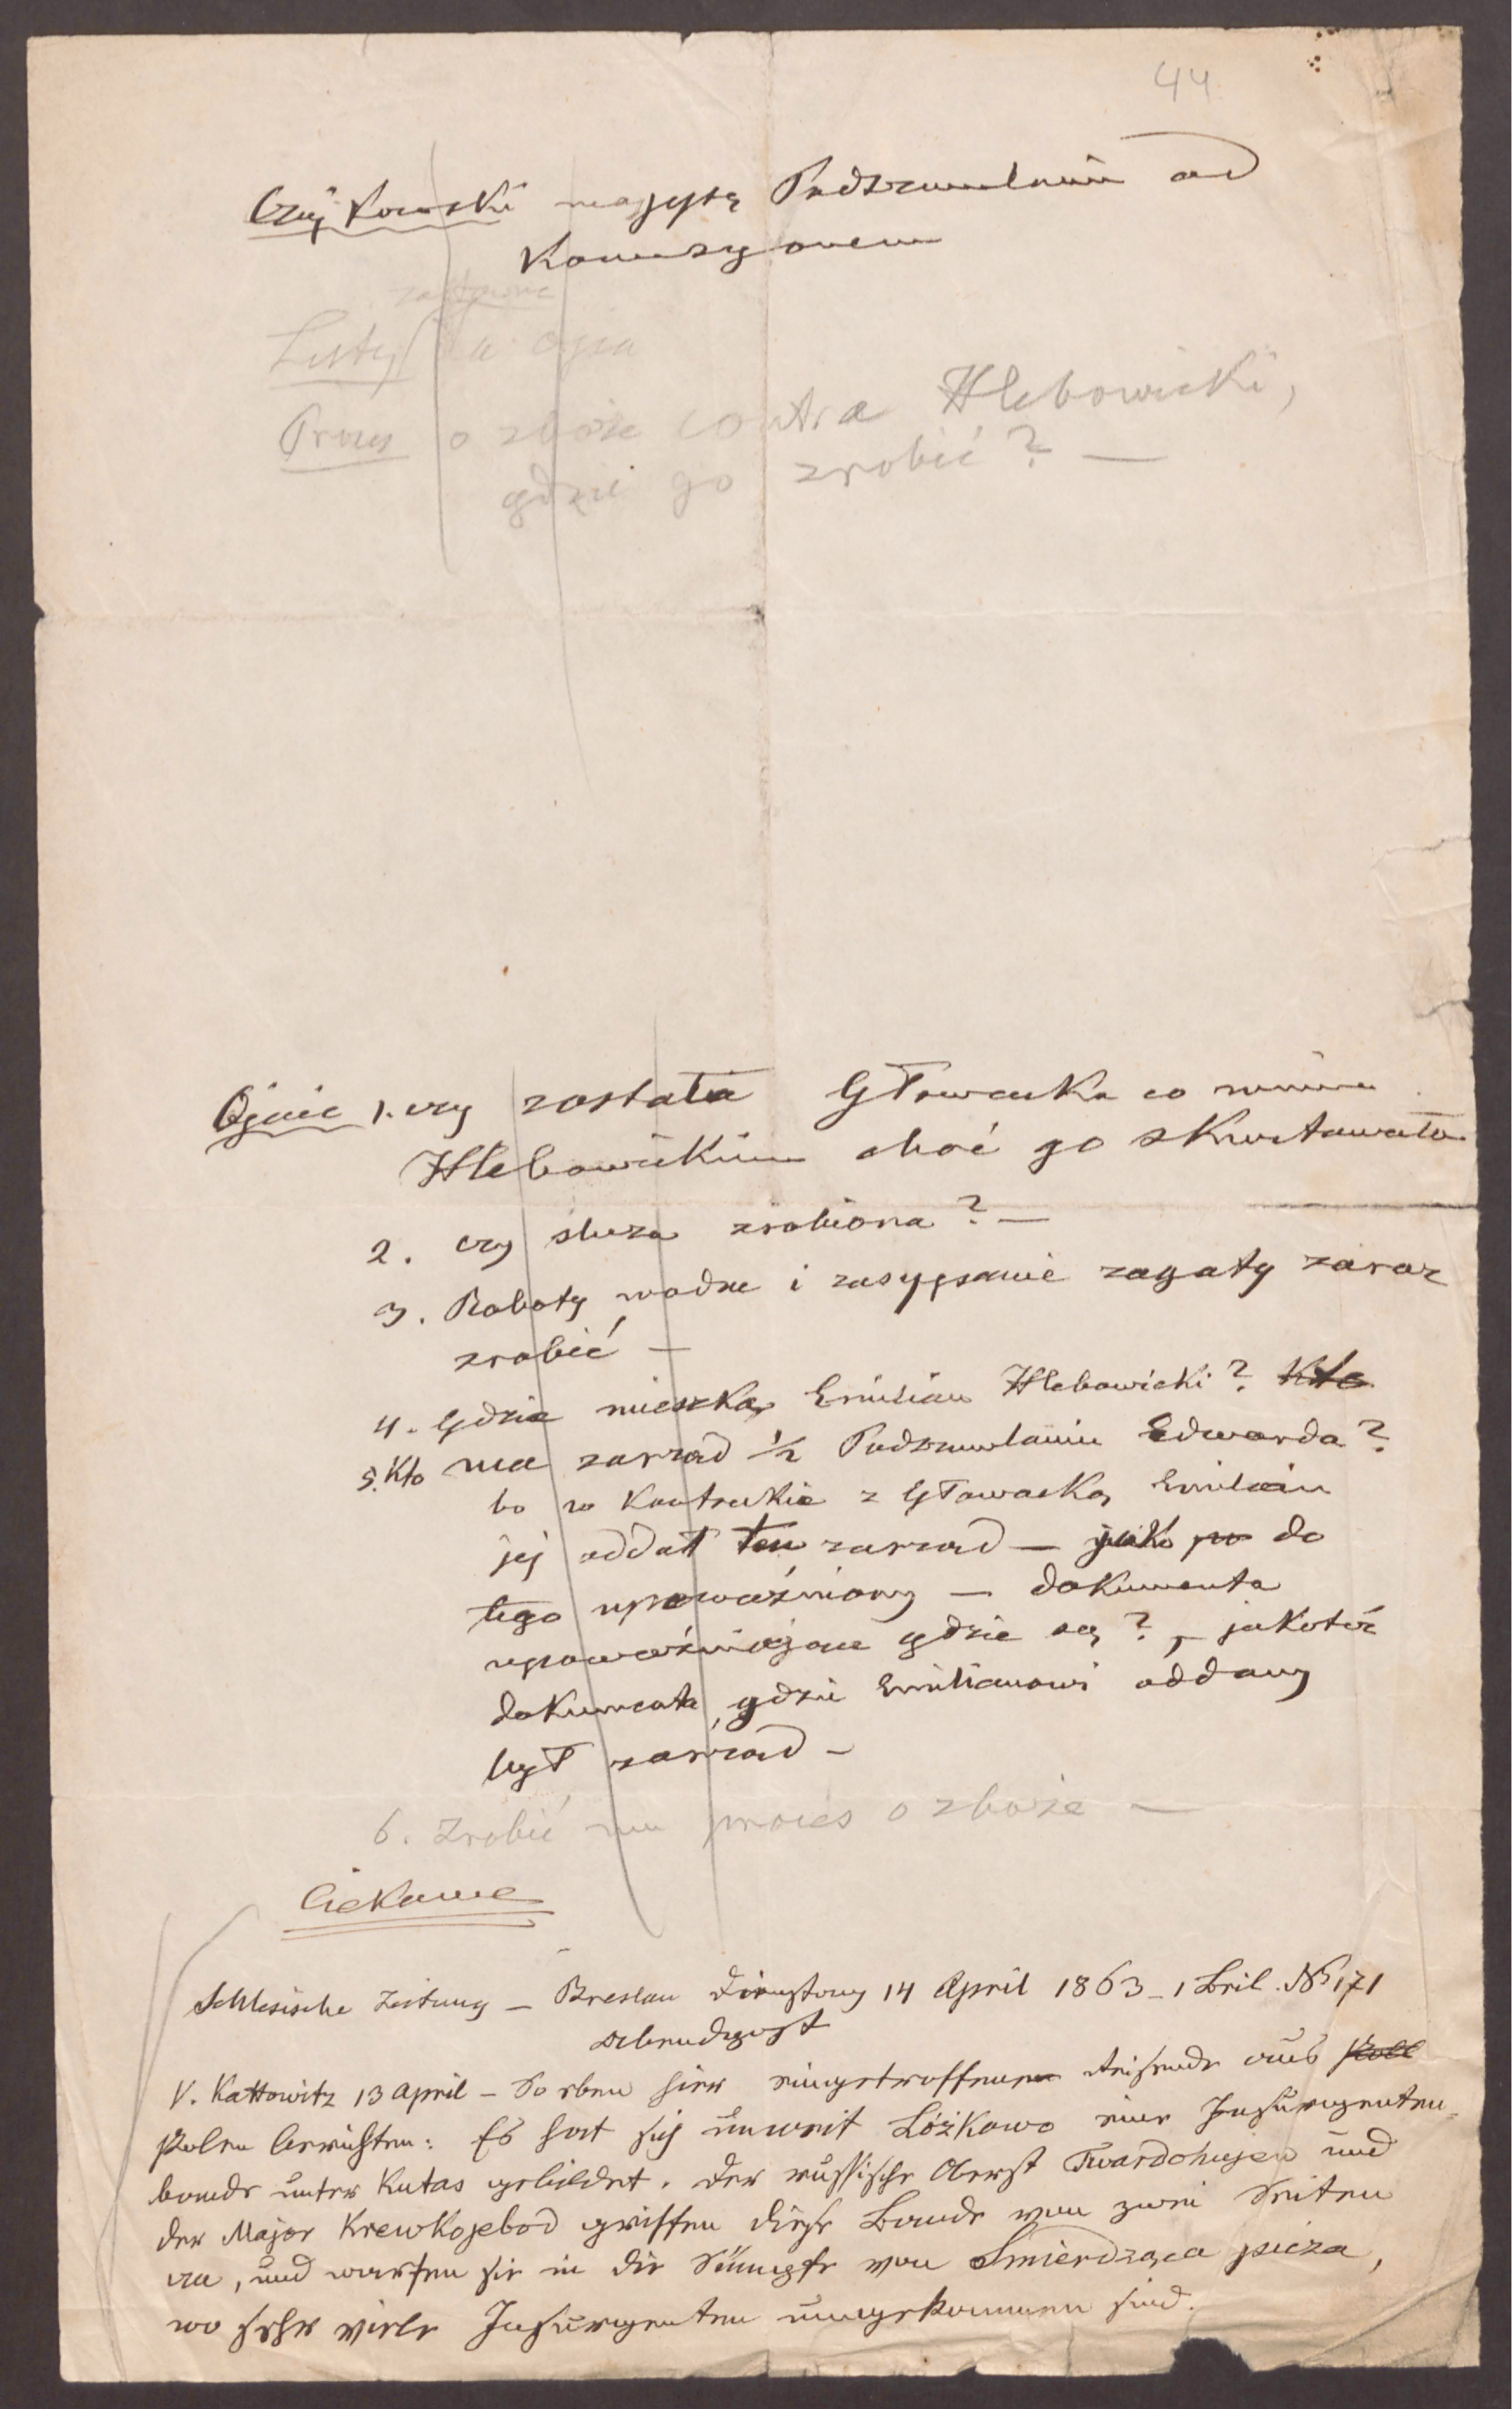 44
Czajkowski magystą Podszumlaniu od
Komuszynem
zastawne
Listy u ojca
Proces o zboże contra Hlebowicki,
gdzie go zrobić? —
Ojciec 1. czy została Głowacka co winna
Hlebowickim choć go skwitowała
2. czy śluza zrobiona? —
3. Roboty wodne i zasypanie zagaty zaraz
zrobić —
4. Gdzie mieszka Emilian Hlebowicki? Kto
5. Kto ma zarząd 1/2 Podszumlaniu Edwarda?
bo w Kontrakcie z Głowacką Emilian
jej oddał ten zarząd — jako po do
tego upoważniony — dokumenta
upoważniające gdzie są? — jakoteż
dokumenta gdzie Emilianowi oddany
był zarząd —
6. Zrobić mu proces o zboże —
Ciekawe
Schlesische Zeitung — Breslau Dienstag 14 April 1863 — 1 Beil. No 171
Abendpost
V. Kattowitz 13 April — So eben hier eingetroffene Reisende aus Poll
Polen berichten: Es hat sich unweit Lóżkowo eine Insurgenten-
bande unter Kutas gebildet. Der russische Oberst Twardohujew und
der Major Krewkojebod griffen diese Bande von zwei Seiten
an, und warfen sie in die Sümpfe von Smierdząca piza,
wo sehr viele Insurgenten umgekommen sind.